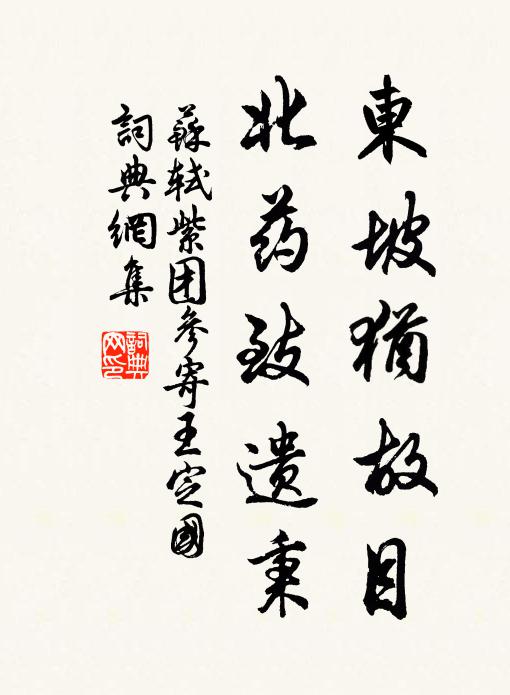 東坡猶故目
北药致遺秉
蘇軾紫团參寄王定國
詞典網集
詞典
网印